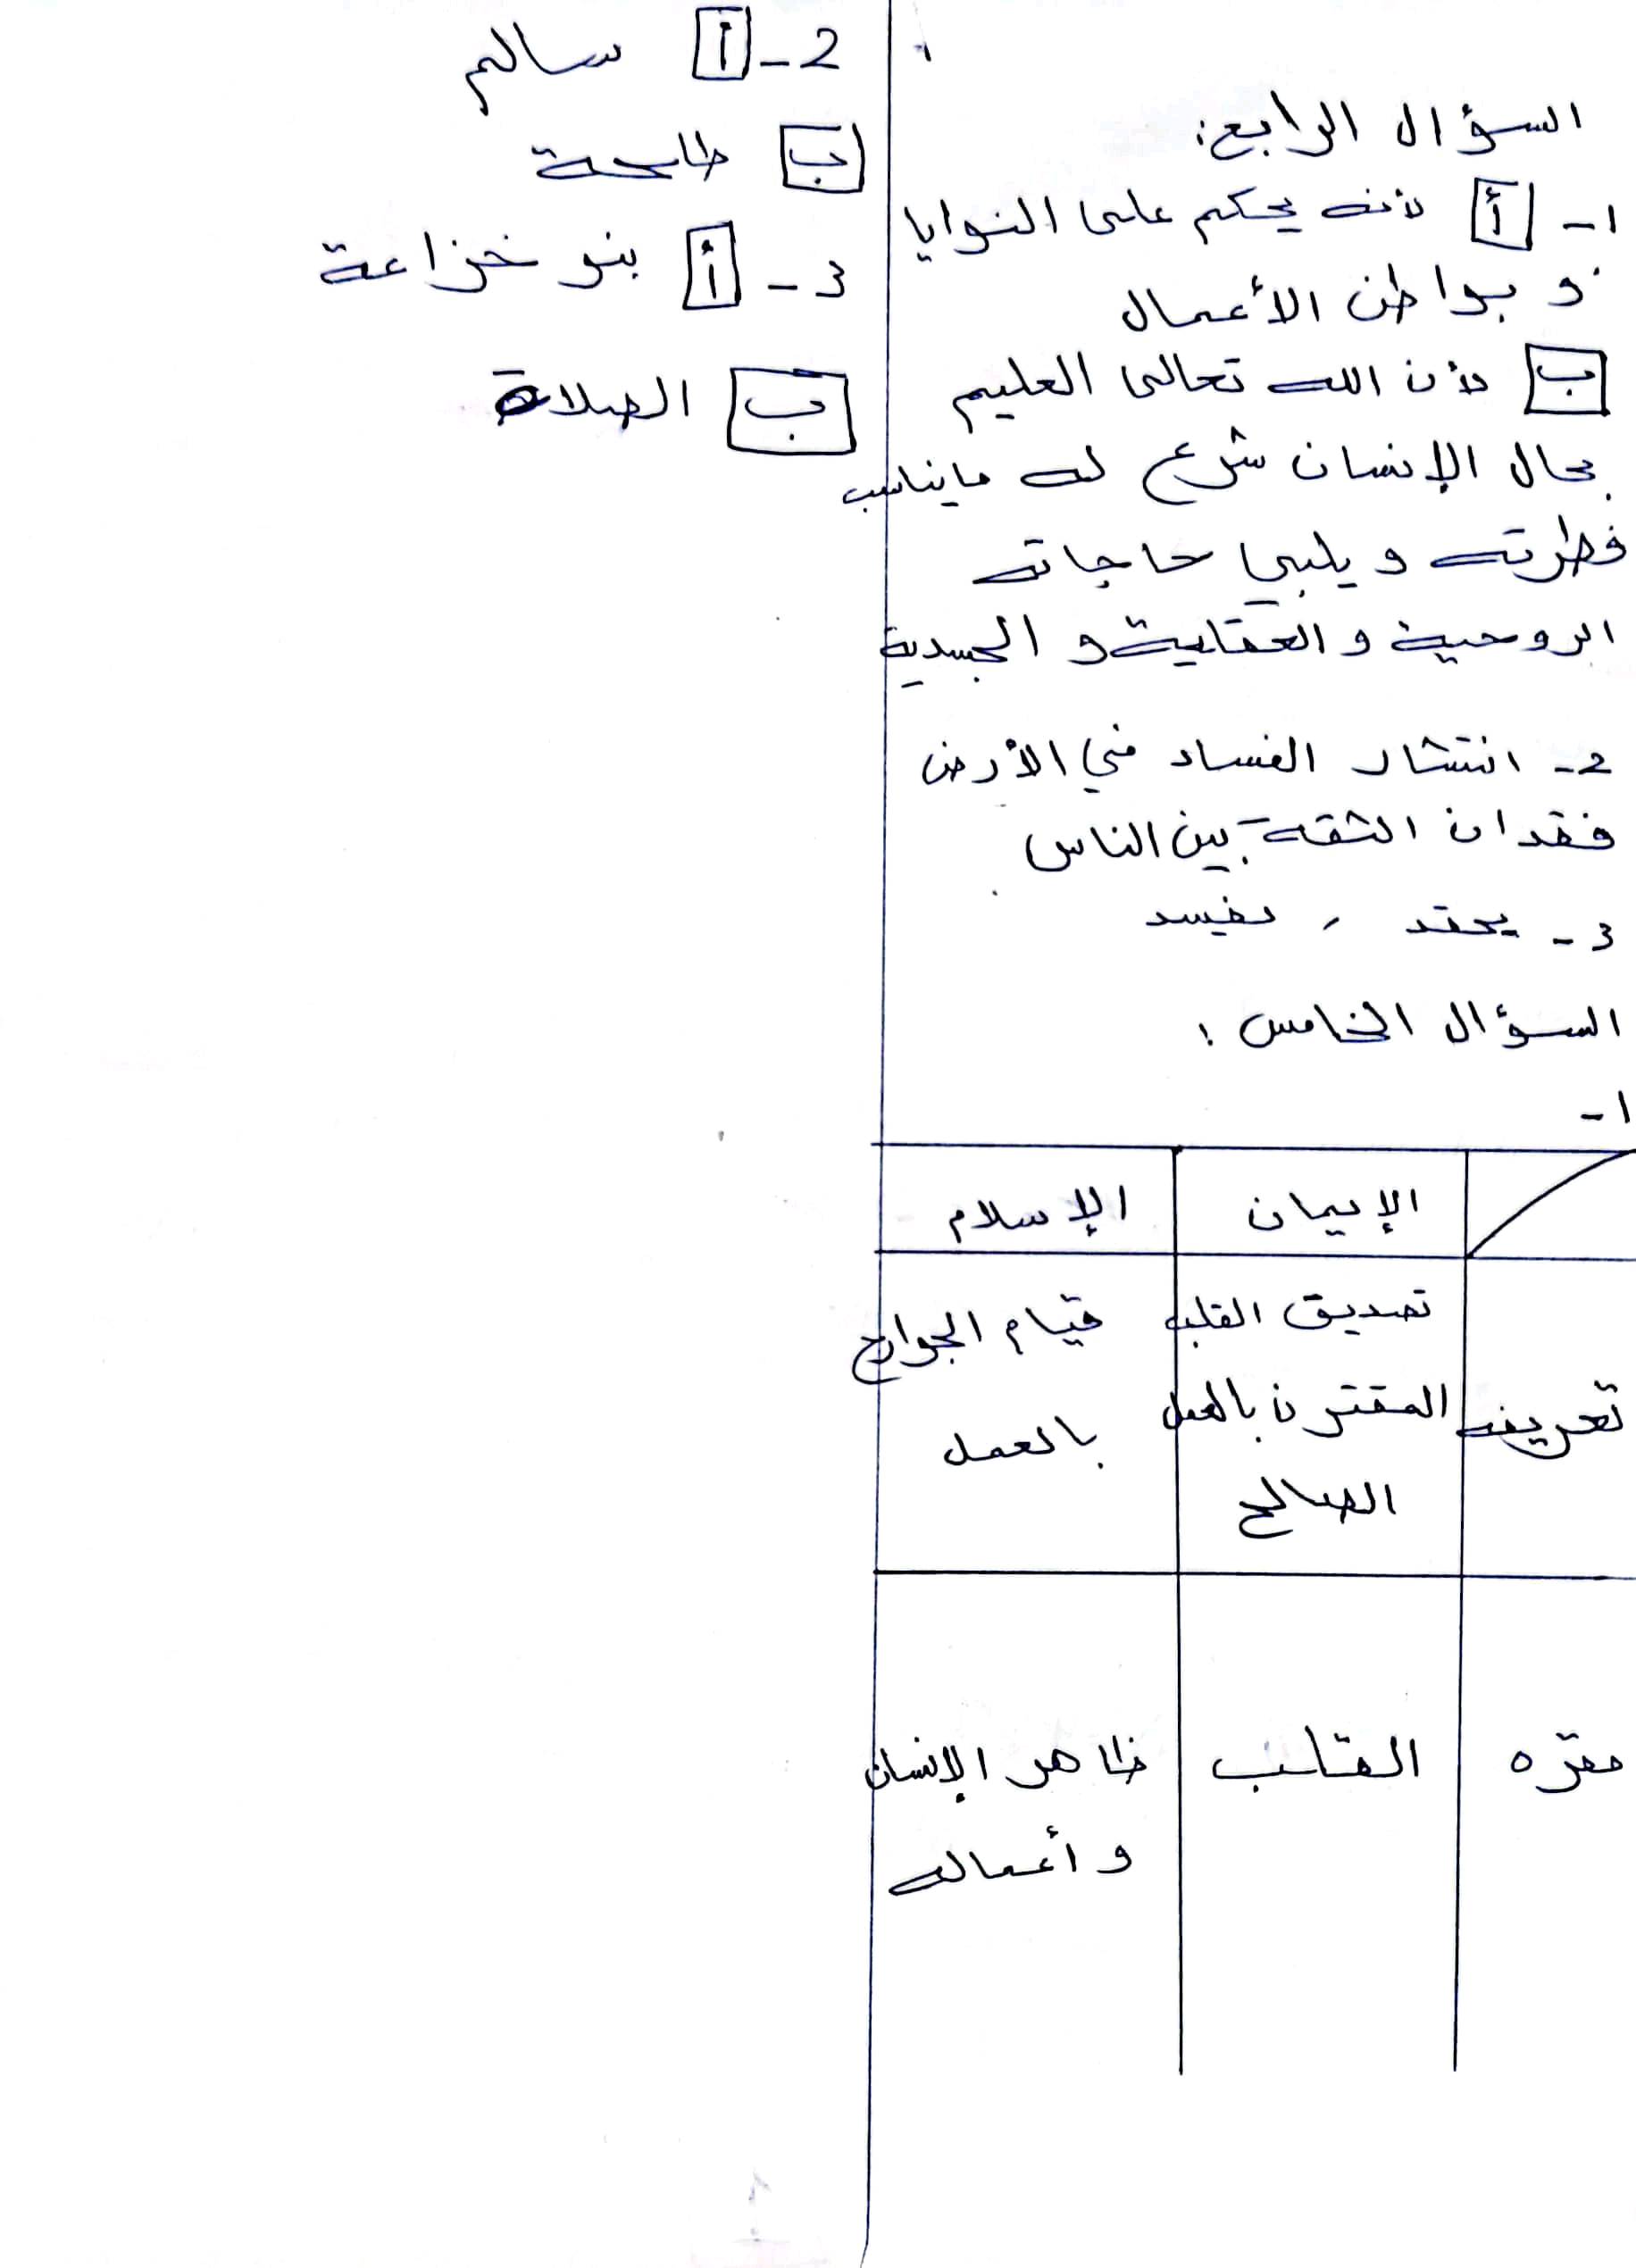 السؤال الرابع:
1- أ لأنه يحكم على النوايا
و بواطن الأعمال
ب لأن الله تعالى العليم
بحال الإنسان شرع له ما يناسب
فطرته و يلبي حاجاته
الروحية و العقلية و الجسدية
2- انتشار الفساد في الأرض
فقدان الثقة بين الناس
3- يحقد ,
السؤال الخامس :
1-
الإيمان الإسلام
تعريفه تصديق القلب المقترن بالعمل الصالح
قيام الجوارح بالعمل
مقرّه القلب ظاهر الإنسان وأعماله
2- أ سالم
ب طلحة
3- أ بنو خزاعة
ب الصلاة